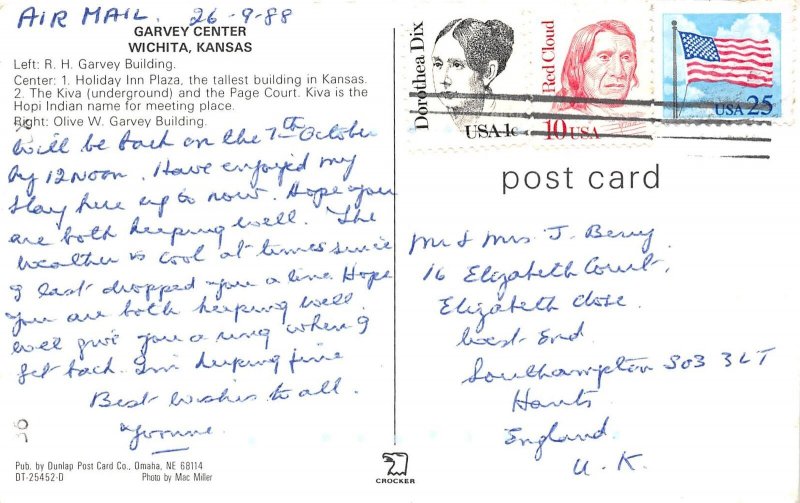 AIR MAIL. 26-9-88
GARVEY CENTER
WICHITA, KANSAS
Left: R. H. Garvey Building.
Center: 1. Holiday Inn Plaza, the tallest building in Kansas.
2. The Kiva (underground) and the Page Court. Kiva is the
Hopi Indian name for meeting place.
Right: Olive W. Garvey Building.
Will be back on the 7th October
by 12 NOON. Have enjoyed my
stay here up to now. Hope you
are both keeping well. The
weather is cool at times since
I last dropped you a line. Hope
you are both keeping well.
Will give you a ring when I
get back. I'm keeping fine
Best wishes to all.
Yvonne.
Pub. by Dunlap Post Card Co., Omaha, NE 68114
DT-25452-D Photo by Mac Miller
CROCKER
Dorothea Dix
USA 1c
Red Cloud
10 USA
USA 25
post card
Mr & Mrs J. Berry.
16 Elizabeth Court,
Elizabeth Close.
West End.
Southampton SO3 3LT
Hants
England.
U.K.